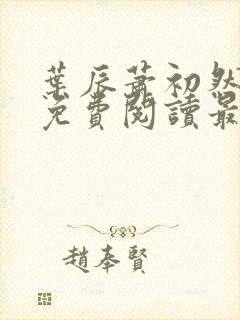 葉辰蕭初然
免費閱讀最
趙奉賢